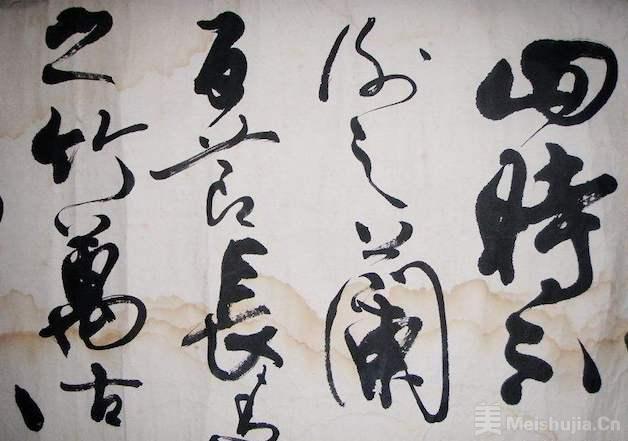 四時不
谢之蘭
百节長青
之竹萬古
美 Meishujia.Cn